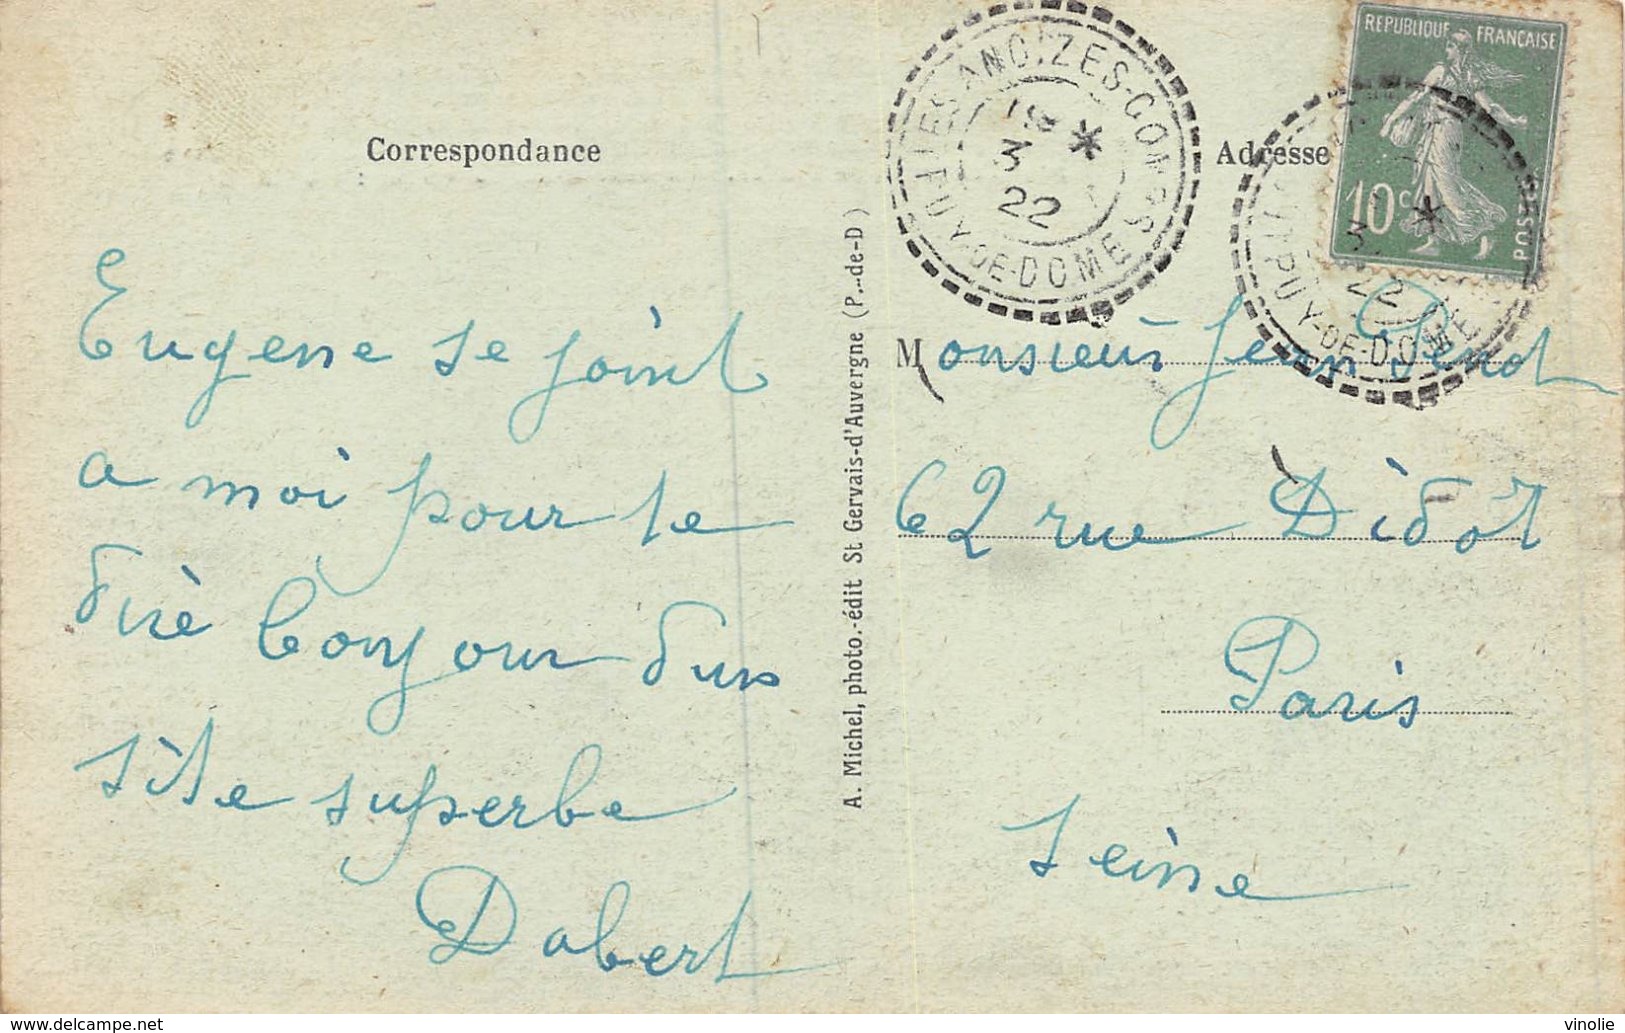 Correspondance
Eugene se joint
a moi pour te
dire bonjour dun
site superbe
Dabert
A. Michel, photo.-édit St Gervais-d'Auvergne (P.-de-D)
LES ANCIZES-COMPS
PUY-DE-DOME
3
22
REPUBLIQUE FRANÇAISE
10c
POSTES
PUY-DE-DOME
3
22
Adresse
Monsieur Jean
62 rue Didot
Paris
Seine
delcampe.net
vinolie